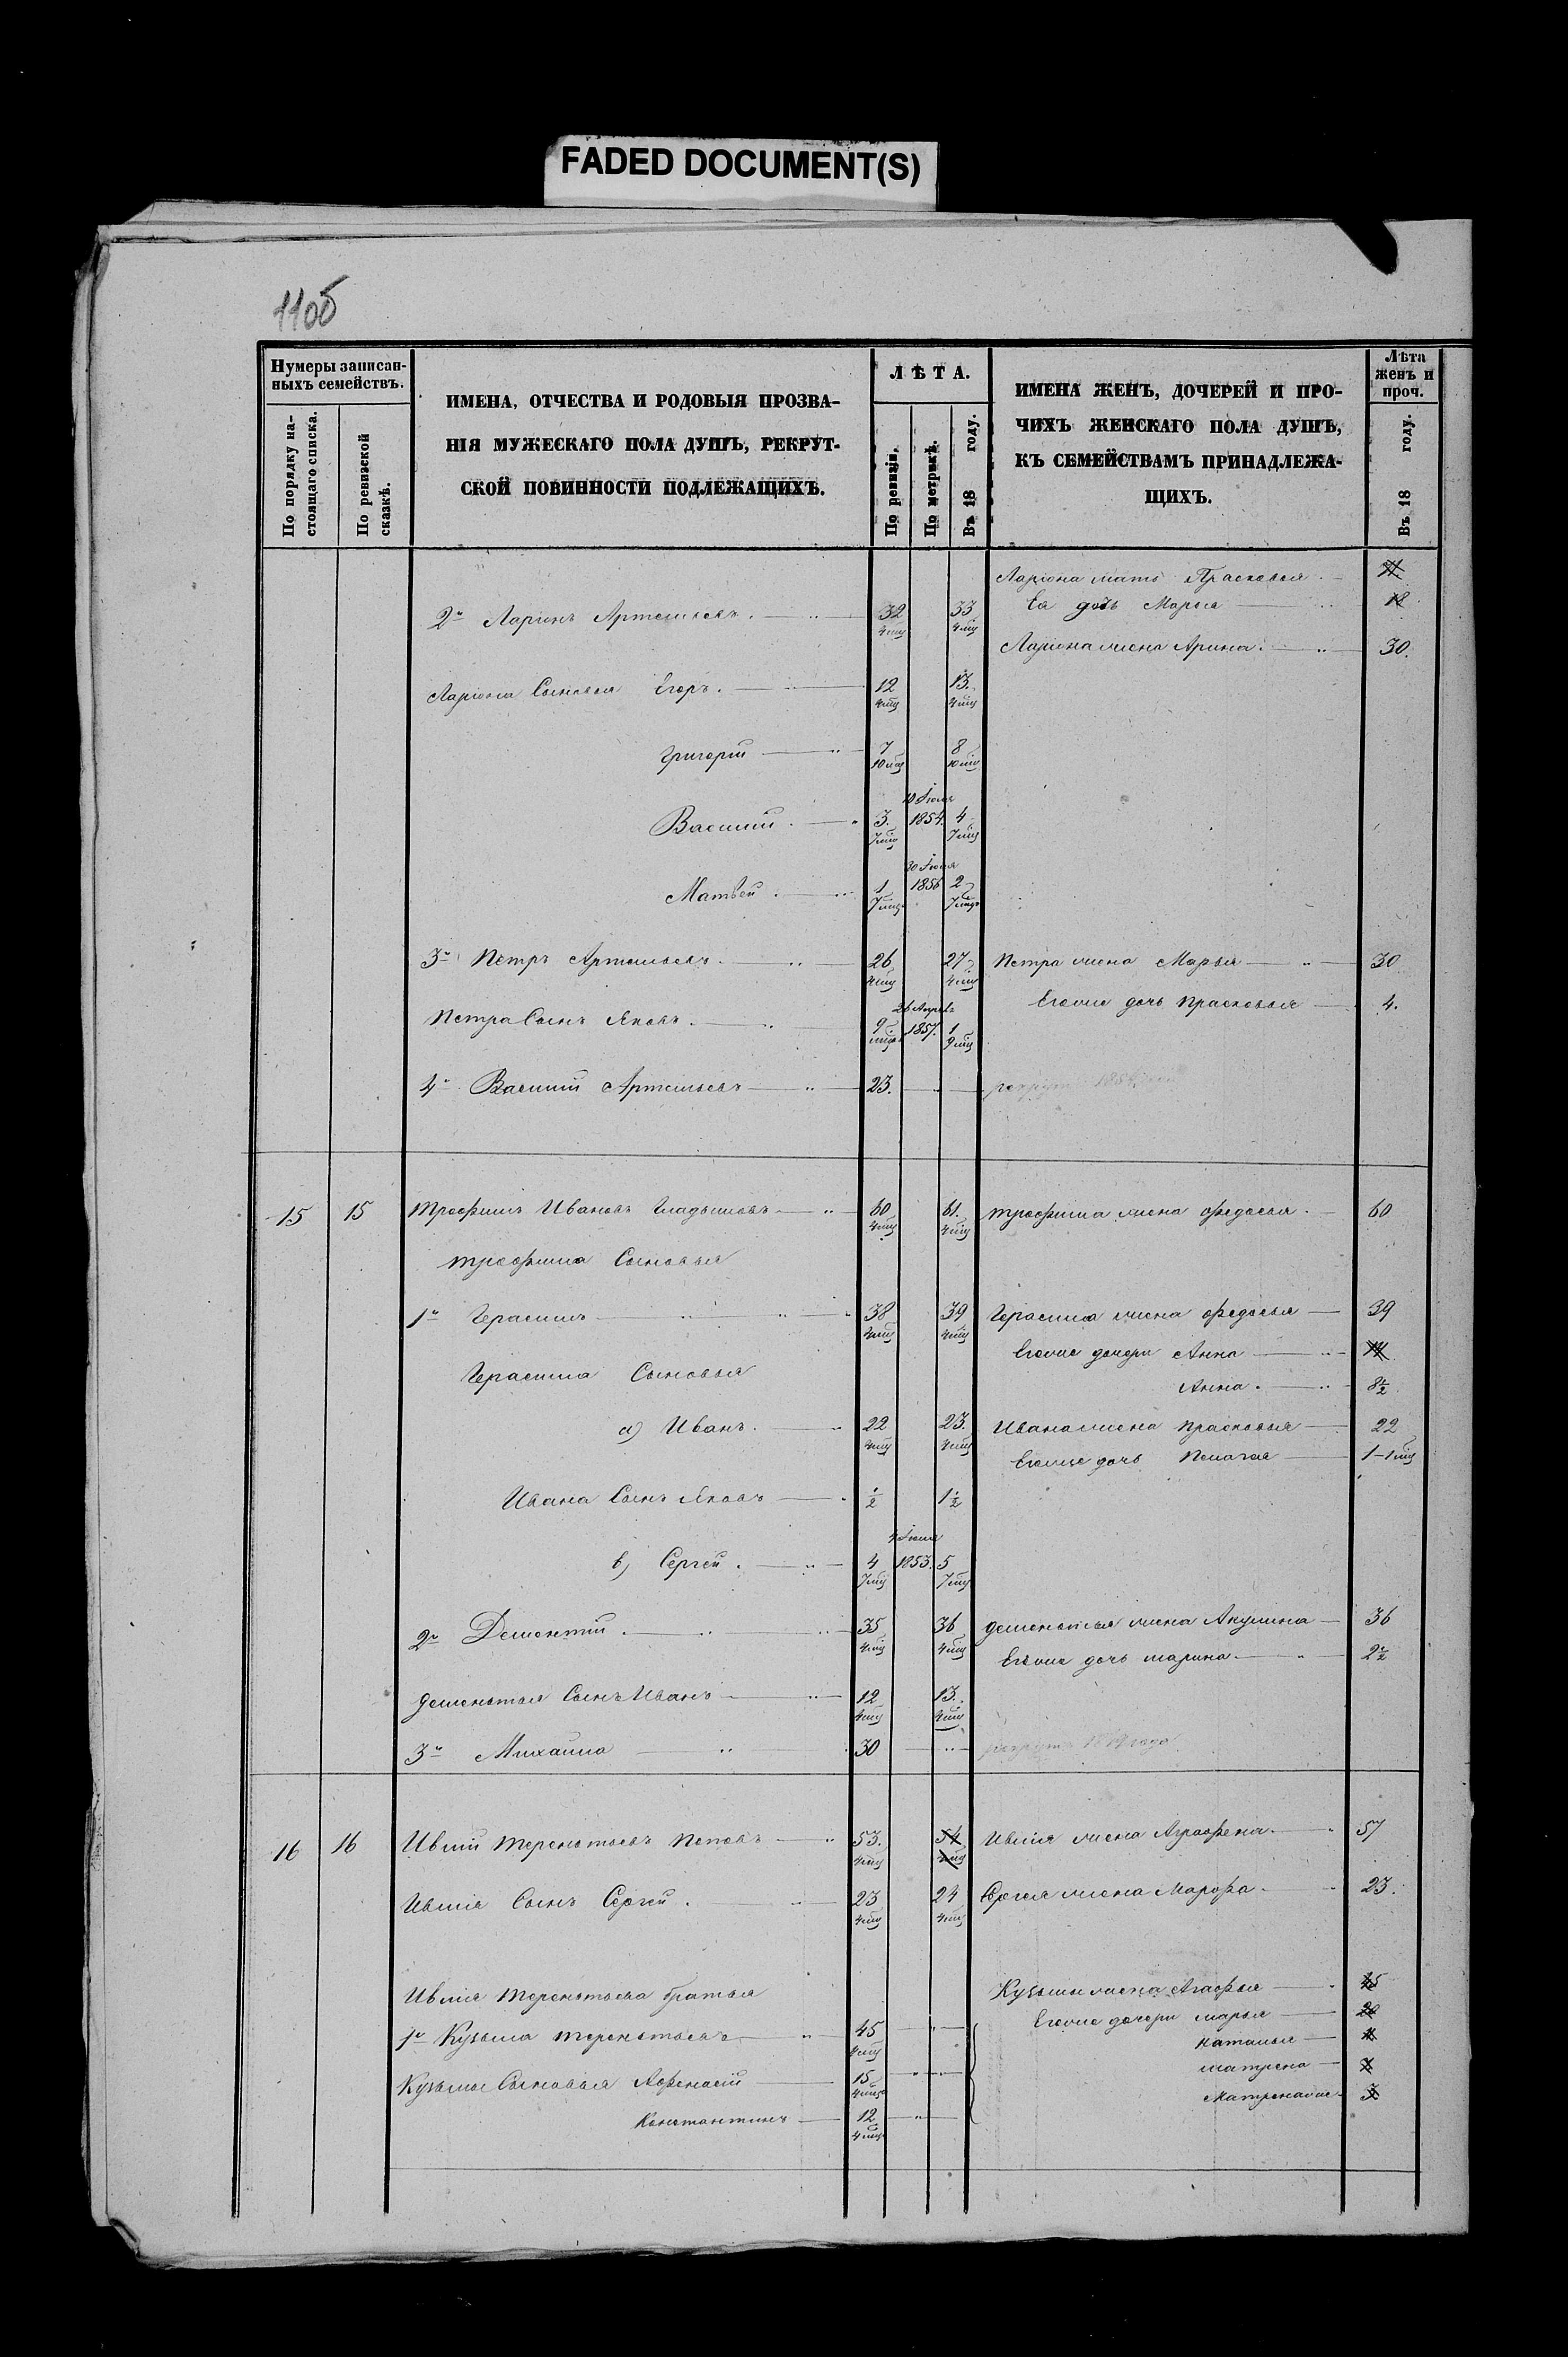 FADED DOCUMENT(S)
110б
Нумеры записан-
ныхъ семействъ.
По порядку на-
стоящаго списка.
По ревизской
сказкѣ.
ИМЕНА, ОТЧЕСТВА И РОДОВЫЯ ПРОЗВА-
НІЯ МУЖЕСКАГО ПОЛА ДУШЪ, РЕКРУТ-
СКОЙ ПОВИННОСТИ ПОДЛЕЖАЩИХЪ.
ЛѢТА.
По ревизіи.
По метрикѣ.
Въ 18 году.
ИМЕНА ЖЕНЪ, ДОЧЕРЕЙ И ПРО-
ЧИХЪ ЖЕНСКАГО ПОЛА ДУШЪ,
КЪ СЕМЕЙСТВАМЪ ПРИНАДЛЕЖА-
ЩИХЪ.
Лѣта
женъ и
проч.
Въ 18 году.
Ларіона мать Прасковья
Ея дочь Марья 18
2й Ларионъ Артемьевъ 32 4 мц 33 4 мц
Ларіона жена Арина 30.
Ларіона Сыновья Егоръ. 12 4 мц 13. 4 мц
Григорій 7 10 мц 8 10 мц
Василій 3. 7 мц 10 Іюля 1854. 4 7 мц
Матвей 1 7 мц 30 Іюля 1856 2 7 мц
3й Петръ Артемьевъ 26 4 мц 27 4 мц Петра жена Марья 30
Егоже дочь Прасковья 4.
Петра Сынъ Яковъ. 9 мцв 26 Апреля 1857. 1 9 мц
4й Василій Артемьевъ 23. рекрутъ
15 15 Трофимъ Ивановъ Гладышовъ 60 4 мц 61. 4 мц Трофима жена Федосья 60
Трофима Сыновья
1й Герасимъ 38 4 мц 39 4 мц Герасима жена Федосья 39
Егоже дочери Анна
Герасима Сыновья
Анна. 8½
а) Иванъ. 22 4 мц 23. 4 мц Ивана жена Прасковья 22
Егоже дочь Пелагея 1-1 мц
Ивана Сынъ Яковъ ½ 1½
в) Сергей. 4 7 мц 4 Іюля 1853. 5 7 мц
2й Дементій. 35 4 мц 36 4 мц Дементья жена Акулина 36
Егоже дочь Марина 2½
Дементья Сынъ Иванъ 12 4 мц 13. 4 мц
3й Михаила 30 рекрутъ года
16 16 Ивлий Терентьевъ Поповъ 53. 4 мц 54 4 мц Ивлія жена Аграфена 57
Ивлія Сынъ Сергей. 23 4 мц 24 4 мц Сергея жена Марфа 23.
Ивлія Терентьева братья
Кузьмы жена Агафья 45
1й Кузьма Терентьевъ 45 4 мц
Егоже дочери Марья 20
Наталья
Матрена
Кузьмы Сыновья Афонасій 15 4 мц
Матрена же 3
Константинъ 12 4 мц